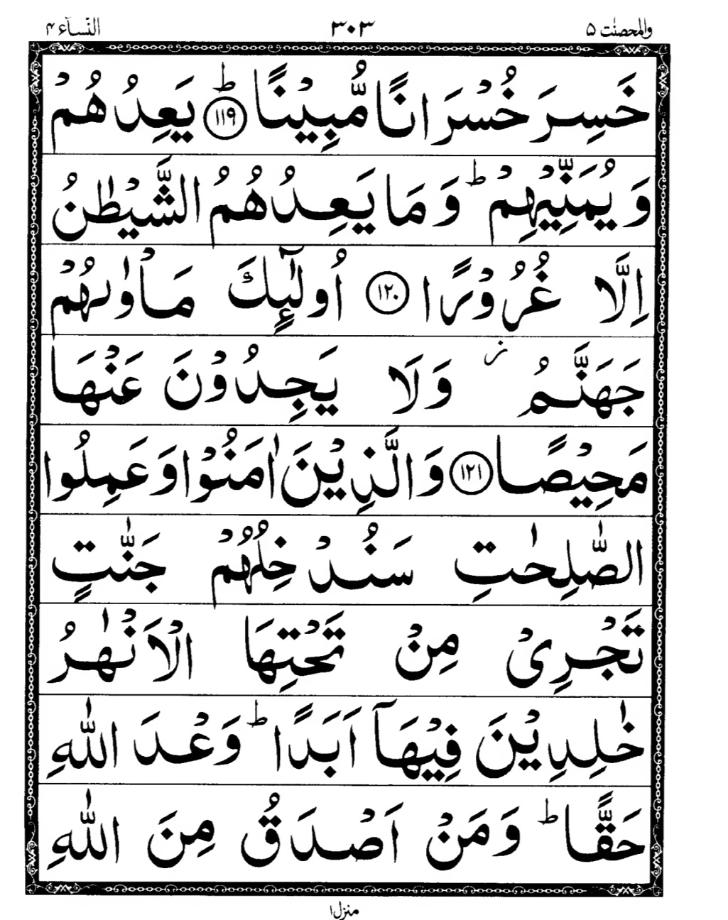 والمحصنت ۵ ۳۰۳ النسآء ۴
خَسِرَ خُسْرَانًا مُّبِیْنًا ؕ﴿۱۱۹﴾ یَعِدُهُمْ
وَیُمَنِّیْهِمْ ؕ وَمَا یَعِدُهُمُ الشَّیْطٰنُ
اِلَّا غُرُوْرًا ﴿۱۲۰﴾ اُولٰٓئِكَ مَاْوٰىهُمْ
جَهَنَّمُ ؗ وَلَا یَجِدُوْنَ عَنْهَا
مَحِیْصًا ﴿۱۲۱﴾ وَالَّذِیْنَ اٰمَنُوْا وَعَمِلُوا
الصّٰلِحٰتِ سَنُدْخِلُهُمْ جَنّٰتٍ
تَجْرِیْ مِنْ تَحْتِهَا الْاَنْهٰرُ
خٰلِدِیْنَ فِیْهَاۤ اَبَدًا ؕ وَعْدَ اللّٰهِ
حَقًّا ؕ وَمَنْ اَصْدَقُ مِنَ اللّٰهِ
منزل۱